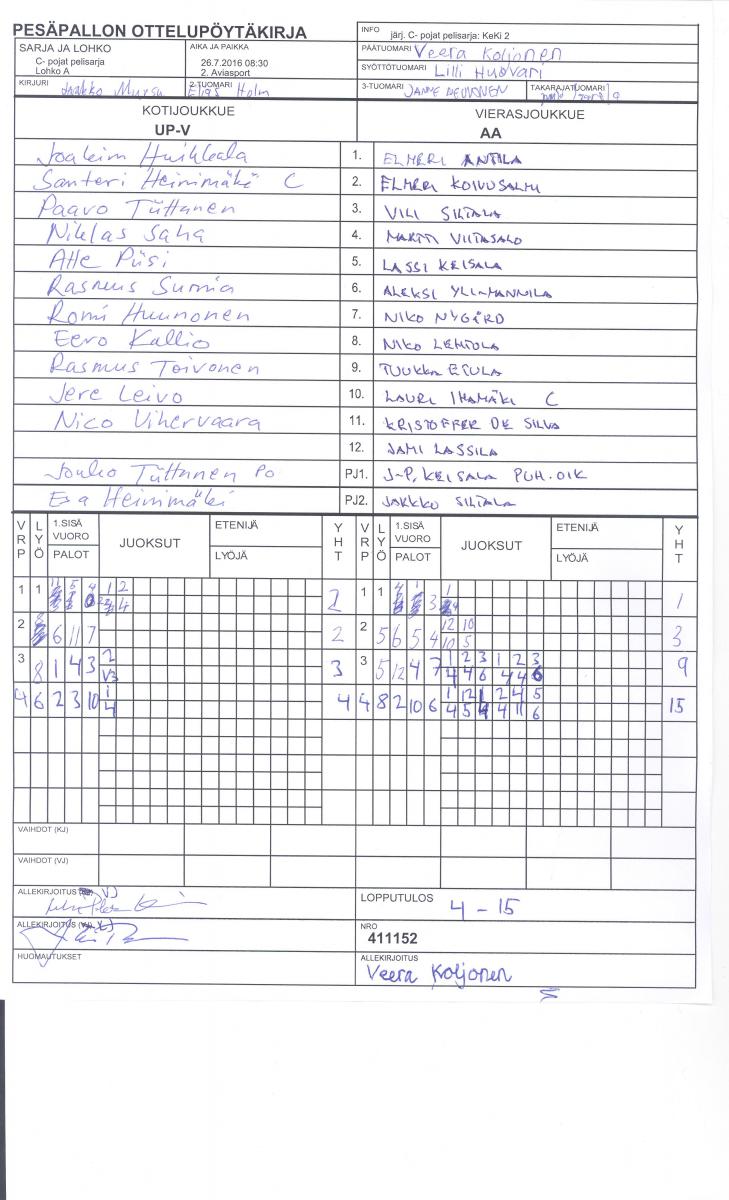 PESÄPALLON OTTELUPÖYTÄKIRJA
INFO järj. C- pojat pelisarja: KeKi 2
SARJA JA LOHKO
C- pojat pelisarja
Lohko A
AIKA JA PAIKKA
26.7.2016 08:30
2. Aviasport
PÄÄTUOMARI Veera Koljonen
SYÖTTÖTUOMARI Lilli Huovari
KIRJURI Jaakko
2-TUOMARI Elias Holm
3-TUOMARI JANNE
TAKARAJATUOMARI
KOTIJOUKKUE
UP-V
VIERASJOUKKUE
AA
Joakim Huikkala 1. ELMERI ANTILA
Santeri Heinimäki C 2. ELMERI KOIVUSALMI
Paavo Tiittanen 3. VILI SILTALA
Niklas Saha 4. MARTTI VIITASALO
Atte Piisi 5. LASSI KEISALA
Rasmus Sumia 6. ALEKSI YLI-MANNILA
Romi Huunonen 7. NIKO NYGÅRD
Eero Kallio 8. NIKO LEHTOLA
Rasmus Toivonen 9. TUUKKA ETULA
Jere Leivo 10. LAURI IHAMÄKI C
Nico Vihervaara 11. KRISTOFFER DE SILVA
12. JAMI LASSILA
Jouko Tiittanen PJ1. J-P. KEISALA PUH.OIK
Esa Heinimäki PJ2. JAKKO SILTALA
VRP LYÖ 1.SISÄ VUORO PALOT JUOKSUT ETENIJÄ LYÖJÄ YHT VRP LYÖ 1.SISÄ VUORO PALOT JUOKSUT ETENIJÄ LYÖJÄ YHT
1 1 2 1 1 3 1
2 6 11 7 2 2 5 6 5 4 12 10 3
10 5
3 8 1 4 3 2 3 3 5 12 4 7 1 2 3 1 2 3 9
4 4 6 4 4 6
4 6 2 3 10 1 4 4 8 2 10 6 1 12 1 2 4 5 15
4 4 5 4 4 11 6
VAIHDOT (KJ)
VAIHDOT (VJ)
ALLEKIRJOITUS VJ
LOPPUTULOS 4 - 15
ALLEKIRJOITUS
NRO
411152
HUOMAUTUKSET
ALLEKIRJOITUS
Veera Koljonen